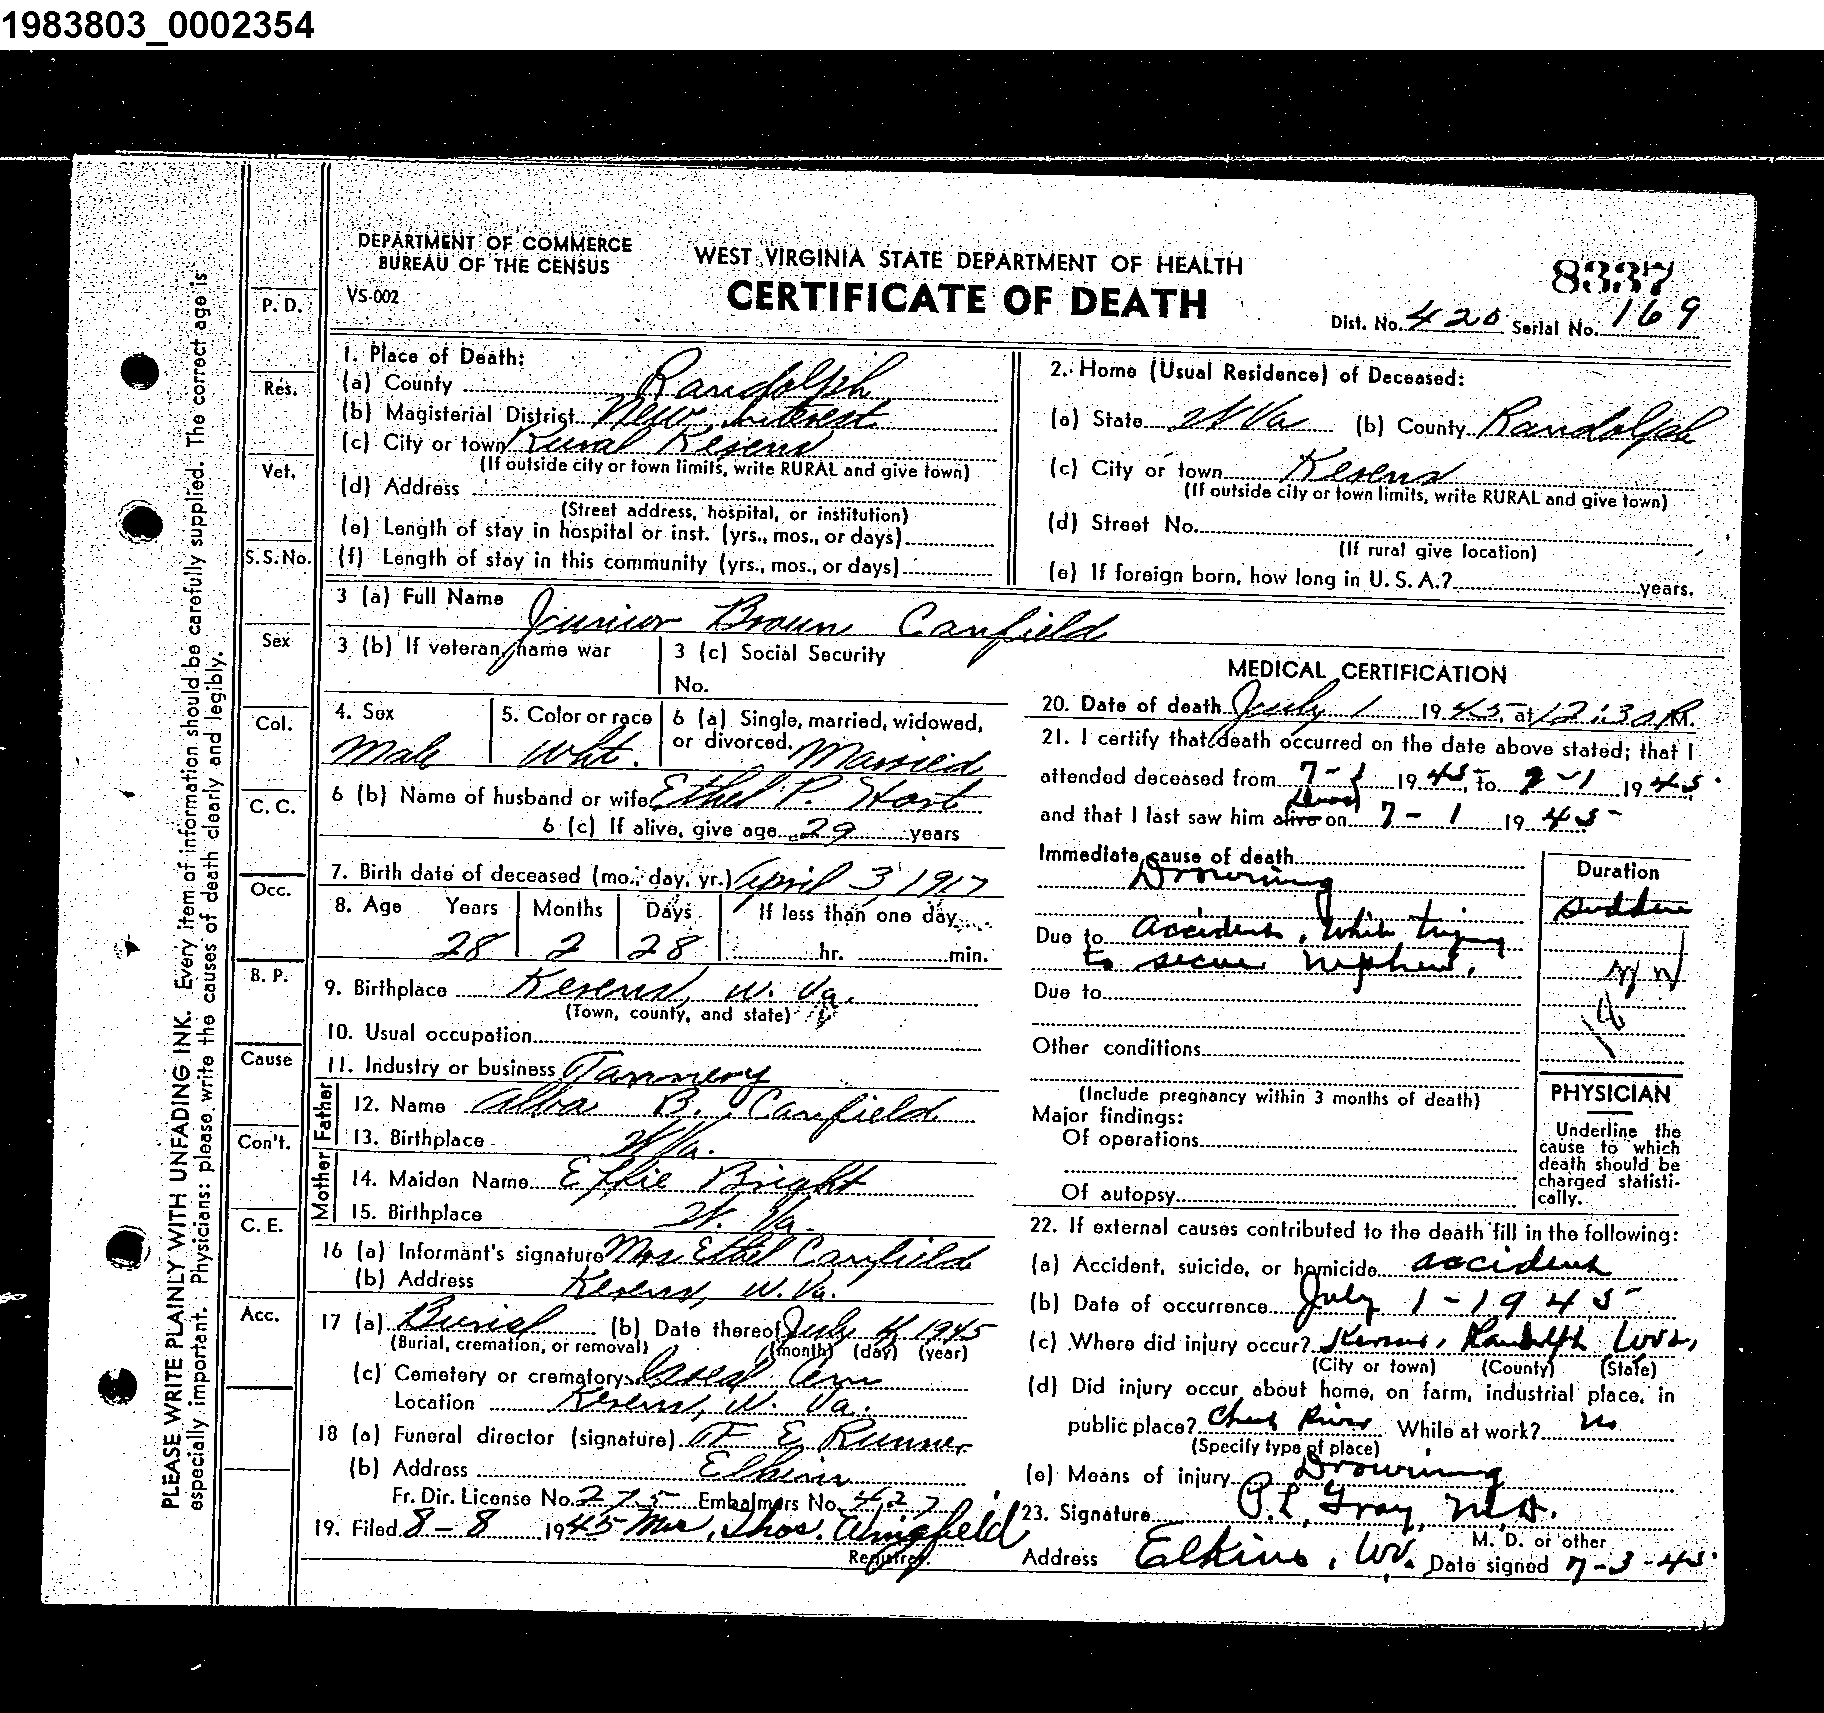 1983803_0002354
DEPARTMENT OF COMMERCE
BUREAU OF THE CENSUS
VS-002
WEST VIRGINIA STATE DEPARTMENT OF HEALTH
CERTIFICATE OF DEATH
8337
Dist. No. 420 Serial No. 169
PLEASE WRITE PLAINLY WITH UNFADING INK. Every item of information should be carefully supplied. The correct age is
especially important. Physicians: please write the causes of death clearly and legibly.
P. D.
Res.
Vet.
S.S.No.
Sex
Col.
C. C.
Occ.
B. P.
Cause
Con't.
C. E.
Acc.
1. Place of Death:
(a) County Randolph
(b) Magisterial District New Interest
(c) City or town Rural Kerens
(If outside city or town limits, write RURAL and give town)
(d) Address
(Street address, hospital, or institution)
(e) Length of stay in hospital or inst. (yrs., mos., or days)
(f) Length of stay in this community (yrs., mos., or days)
2. Home (Usual Residence) of Deceased:
(a) State W Va (b) County Randolph
(c) City or town Kerens
(If outside city or town limits, write RURAL and give town)
(d) Street No.
(If rural give location)
(e) If foreign born, how long in U. S. A.? years.
3 (a) Full Name Junior Brown Canfield
3 (b) If veteran, name war
3 (c) Social Security
No.
4. Sex
Male
5. Color or race
Wht.
6 (a) Single, married, widowed,
or divorced. Married
6 (b) Name of husband or wife Ethel P. Hart
6 (c) If alive, give age 29 years
7. Birth date of deceased (mo., day, yr.) April 3, 1917
8. Age Years Months Days If less than one day
28 2 28 hr. min.
9. Birthplace Kerens, W. Va.
(Town, county, and state)
10. Usual occupation
11. Industry or business Tannery
Father
12. Name Alba B. Canfield
13. Birthplace W Va.
Mother
14. Maiden Name Effie Bright
15. Birthplace W. Va.
16 (a) Informant's signature Mrs Ethel Canfield
(b) Address Kerens, W. Va.
17 (a) Burial (b) Date thereof July 4, 1945
(Burial, cremation, or removal) (month) (day) (year)
(c) Cemetery or crematory Cem
Location Kerens, W. Va.
18 (a) Funeral director (signature) F E Runner
(b) Address Elkins
Fr. Dir. License No. 275 Embalmers No. 427
19. Filed 8-8 1945 Mrs. Thos. Wingfield
Registrar
MEDICAL CERTIFICATION
20. Date of death July 1 1945, at 12:30 P.M.
21. I certify that death occurred on the date above stated; that I
attended deceased from 7-1 1945 to 7-1 1945
dead
and that I last saw him alive on 7-1 1945
Immediate cause of death
Drowning
Due to accident, while trying
to secure nephew.
Due to
Other conditions
(Include pregnancy within 3 months of death)
Major findings:
Of operations
Of autopsy
Duration
sudden
PHYSICIAN
Underline the
cause to which
death should be
charged statisti-
cally.
22. If external causes contributed to the death fill in the following:
(a) Accident, suicide, or homicide accident
(b) Date of occurrence July 1-1945
(c) Where did injury occur? Kerens, Randolph WVa,
(City or town) (County) (State)
(d) Did injury occur about home, on farm, industrial place, in
public place? Cheat River While at work? no
(Specify type of place)
(e) Means of injury Drowning
23. Signature P. L. Gray, M.D.
M. D. or other
Address Elkins, WV. Date signed 7-3-45